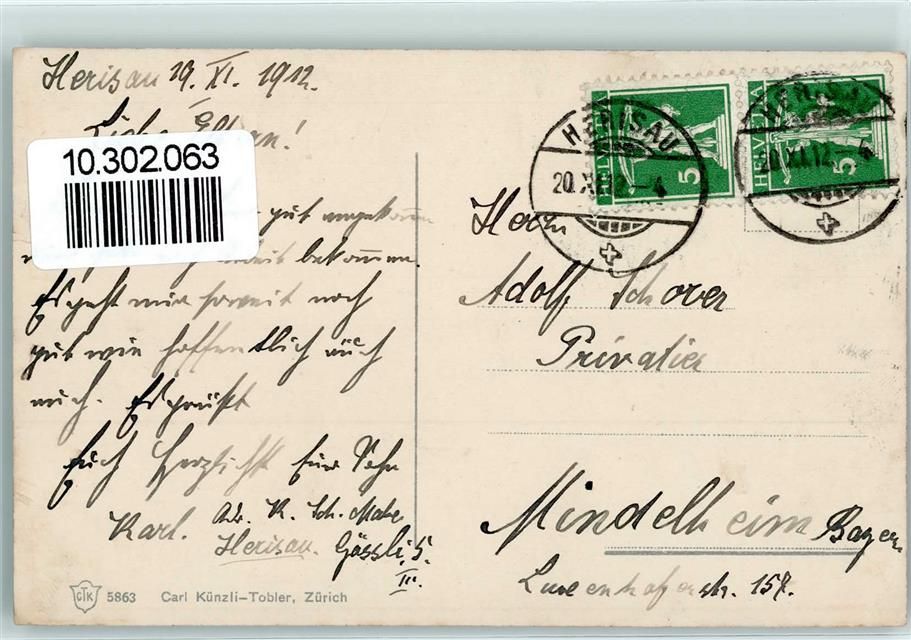 Herisau 19. XI. 1912.
Liebe Eltern!
10.302.063
gut angekommen
bekommen.
Es geht mir soweit noch
gut wie hoffentlich auch
euch. Es grüßt
Euch Herzlichst Euer Sohn
Karl. Adr. K. Sch.
Herisau. Gössli, 5.
III.
CTK 5863 Carl Künzli-Tobler, Zürich
HELVETIA 5
HELVETIA 5
HERISAU
20.XI.12.-4
HERISAU
20.XI.12.-4
Herrn
Adolf Schorer
Privatier
Mindelheim Bayern
str. 157.